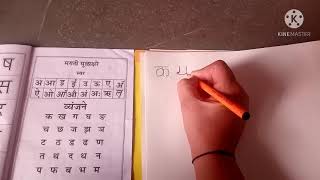 मराठी मुळाक्षरे
स्वर
अ आ इ ई उ ऊ ए
ऐ ओ औ अं अः ऋ
व्यंजने
क ख ग घ ङ
च छ ज झ ञ
ट ठ ड ढ ण
त थ द ध न
प फ ब भ म
क
Made with
KINEMASTER